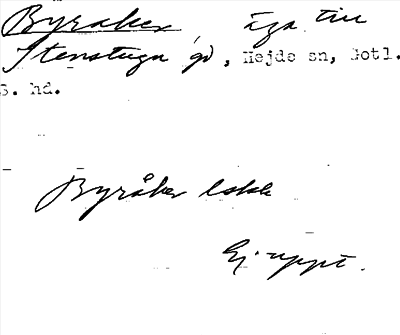 Byråker, äga till
Stenstugu gd, Hejde sn, Gotl.
S. hd.
Byråker lokk
Ej uppt.